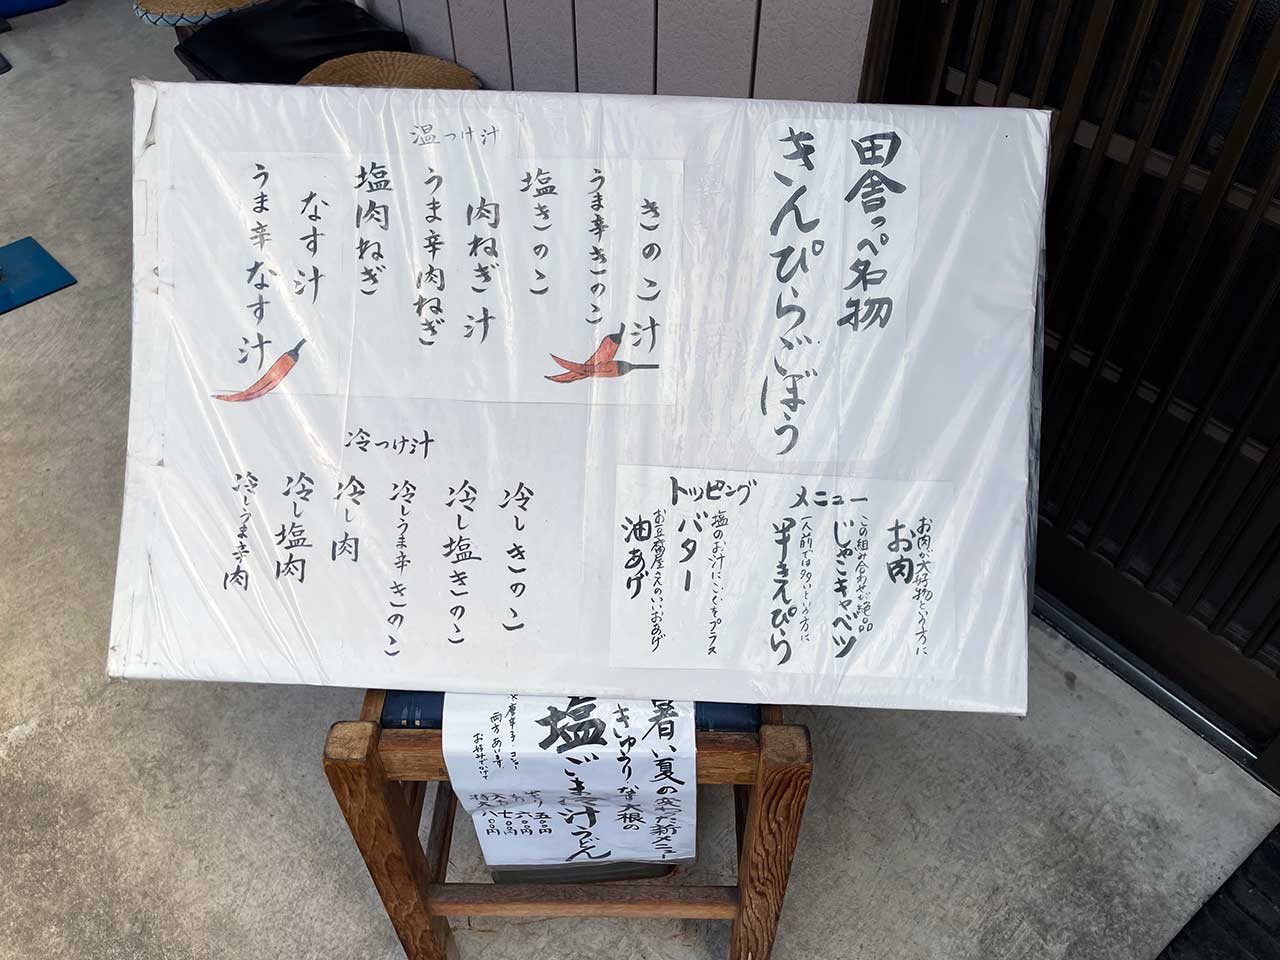 田舎っぺ名物
きんぴらごぼう
温つけ汁
きのこ汁
うま辛きのこ
塩きのこ
肉ねぎ汁
うま辛肉ねぎ
塩肉ねぎ
なす汁
うま辛なす汁
冷つけ汁
冷しきのこ
冷し塩きのこ
冷しうま辛きのこ
冷し肉
冷し塩肉
冷しうま辛肉
トッピングメニュー
お肉が大好物という方に
お肉
この組み合わせが絶品
じゃこキャベツ
一人前では多いという方に
半きんぴら
塩のお汁にこくをプラス
バター
お豆腐屋さんのいいおあげ
油あげ
暑い夏の変わった新メニュー
きゅうり・なす・大根の
塩ごま冷汁うどん
両方あいます
お好みでかけて
五〇〇円
六〇〇円
七〇〇円
八〇〇円